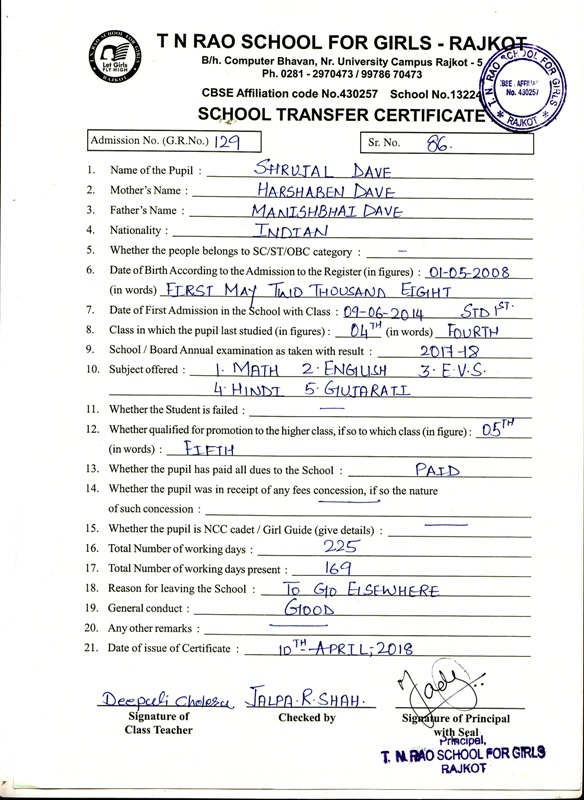 T N RAO SCHOOL FOR GIRLS - RAJKOT
B/h. Computer Bhavan, Nr. University Campus Rajkot - 5
Ph. 0281 - 2970473 / 99786 70473
CBSE Affiliation code No.430257 School No.13224
SCHOOL TRANSFER CERTIFICATE
T. N. RAO SCHOOL FOR GIRLS
CBSE - AFFILIAT
No. 430257
RAJKOT
T N RAO SCHOOL FOR GIRLS
Let Girls
FLY HIGH
RAJKOT
Admission No. (G.R.No.) 129 Sr. No. 86.
1. Name of the Pupil : SHRUJAL DAVE
2. Mother's Name : HARSHABEN DAVE
3. Father's Name : MANISHBHAI DAVE
4. Nationality : INDIAN
5. Whether the people belongs to SC/ST/OBC category : –
6. Date of Birth According to the Admission to the Register (in figures) : 01-05-2008
(in words) FIRST MAY TWO THOUSAND EIGHT
7. Date of First Admission in the School with Class : 09-06-2014 STD 1ST.
8. Class in which the pupil last studied (in figures) : 04TH (in words) FOURTH
9. School / Board Annual examination as taken with result : 2017-18
10. Subject offered : 1. MATH 2. ENGLISH 3. E.V.S.
4. HINDI 5. GUJARATI
11. Whether the Student is failed : —
12. Whether qualified for promotion to the higher class, if so to which class (in figure) : 05TH
(in words) : FIFTH
13. Whether the pupil has paid all dues to the School : PAID
14. Whether the pupil was in receipt of any fees concession, if so the nature
of such concession : —
15. Whether the pupil is NCC cadet / Girl Guide (give details) : —
16. Total Number of working days : 225
17. Total Number of working days present : 169
18. Reason for leaving the School : TO GO ELSEWHERE
19. General conduct : GOOD
20. Any other remarks : —
21. Date of issue of Certificate : 10TH-APRIL, 2018
Deepali JALPA.R.SHAH.
Signature of Class Teacher
Checked by
Signature of Principal
with Seal
Principal,
T. N. RAO SCHOOL FOR GIRLS
RAJKOT